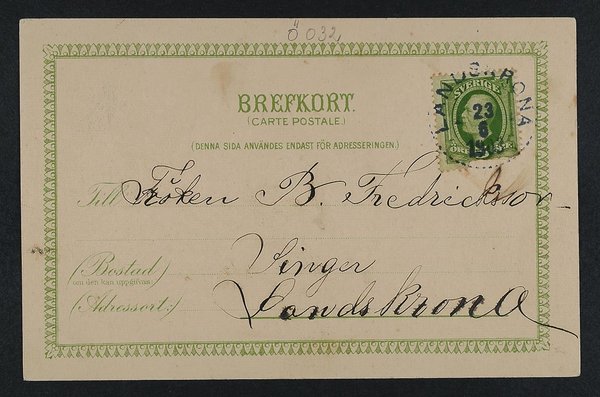 Ö 032,
LANDSKRONA
SVERIGE
23
8
BREFKORT.
(CARTE POSTALE.)
(DENNA SIDA ANVÄNDES ENDAST FÖR ADRESSERINGEN.)
Till Fröken B. Fredricksson
(Bostad)
om den kan uppgifvas
Singer
(Adressort:) Landskrona